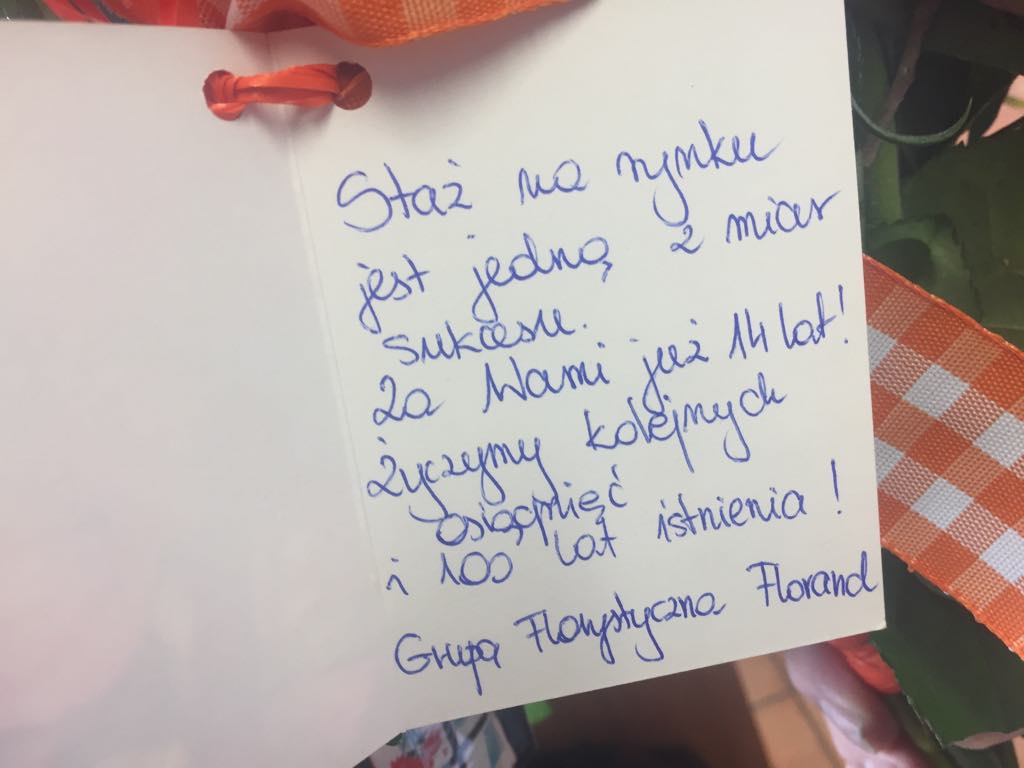 Staż na rynku
jest jedną z miar
sukcesu.
Za Wami już 14 lat!
Życzymy kolejnych
osiągnięć
i 100 lat istnienia!
Grupa Florystyczna Florand